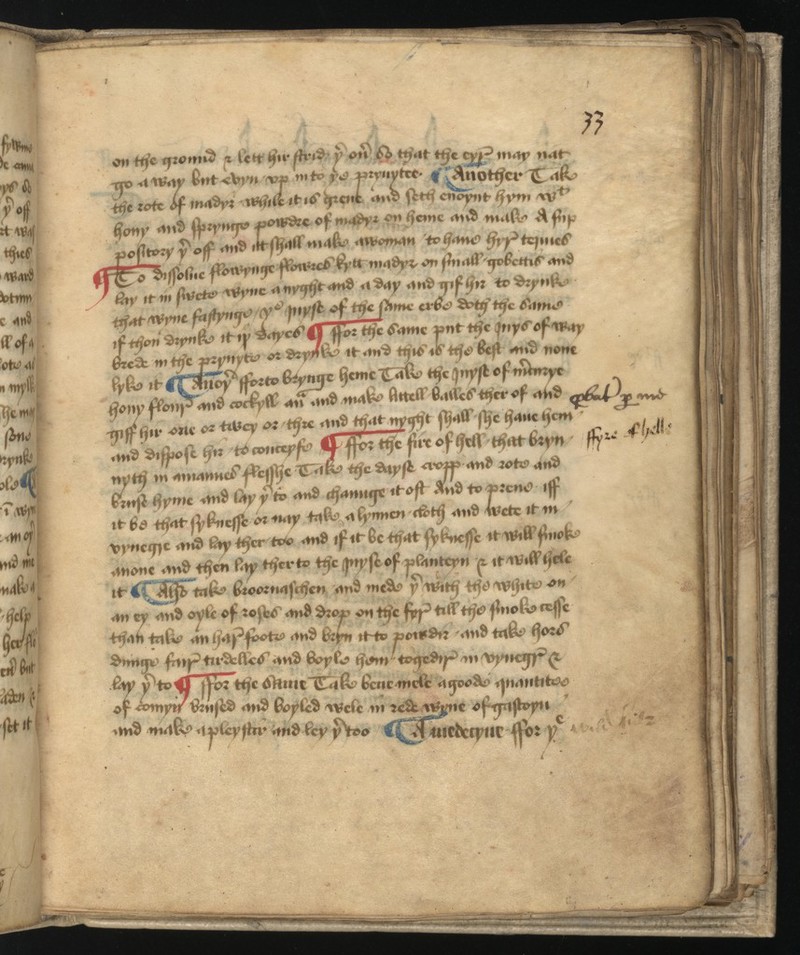 33
on the ground & lett hir strid yͬ oũ so that the eyr̃ may nat
go a way but evyn vp in to yͤ prynytee ¶ Another Take
the rote of madyr while it is grene and seth enoynt hym wᵗ
hony and sprynge powdre of madyr on heme and make A sup
pository yͬ off and itt shall make a woman to haue hyr̃ termes
¶ To dissolue flowynge flowres kytt madyr on small gobettis and
lay it in swete wyne a nyght and a day and gif hir to drynke
that wyne fastynge yͤ Juyse of the same erbe doth the same
if thou drynke it ix dayes ¶ ffor the same put the Juys of way
brede in the prynyte or drynke it and this is the best and none
lyke it ¶ Anoyͬ fforto brynge heme Take the Juyse of
hony flour̃ and cockyll añ and make littell balles ther of and
giff hir one or twey or thre and that nyght shall she haue hem
and dispose hir to conceyfe ¶ ffor the fire of hell that bryn
nyth in a mannes flesshe Take the dayse cropp and rote and
bruse hyme and lay yͬ to and chaunge it oft And to preue iff
it be that syknesse or nay take a lynnen cloth and wete it in
vynegre and lay ther too and if it be that syknesse it will smoke
anone and then lay ther to the Juyse of planteyn & it will hele
it ¶ Also take and mede yͬ with the white on
an ey and oyle of roses and drop on the fyr̃ till the smoke cesse
than take an har̃ foote and bryn it to powdir and take hors
dunge fair̃ tirdelles and boyle hem togedir̃ in vynegr̃ &
lay yͬ to ¶ ffor the same Take bene mele a goode quantitee
of comyn brused and boyled wele in rede wyne of gascoyn
and make a pleystir and ley yͬ too ¶ A medecyne ffor yͤ
ꝓbat ꝑ me
ffyre of helle